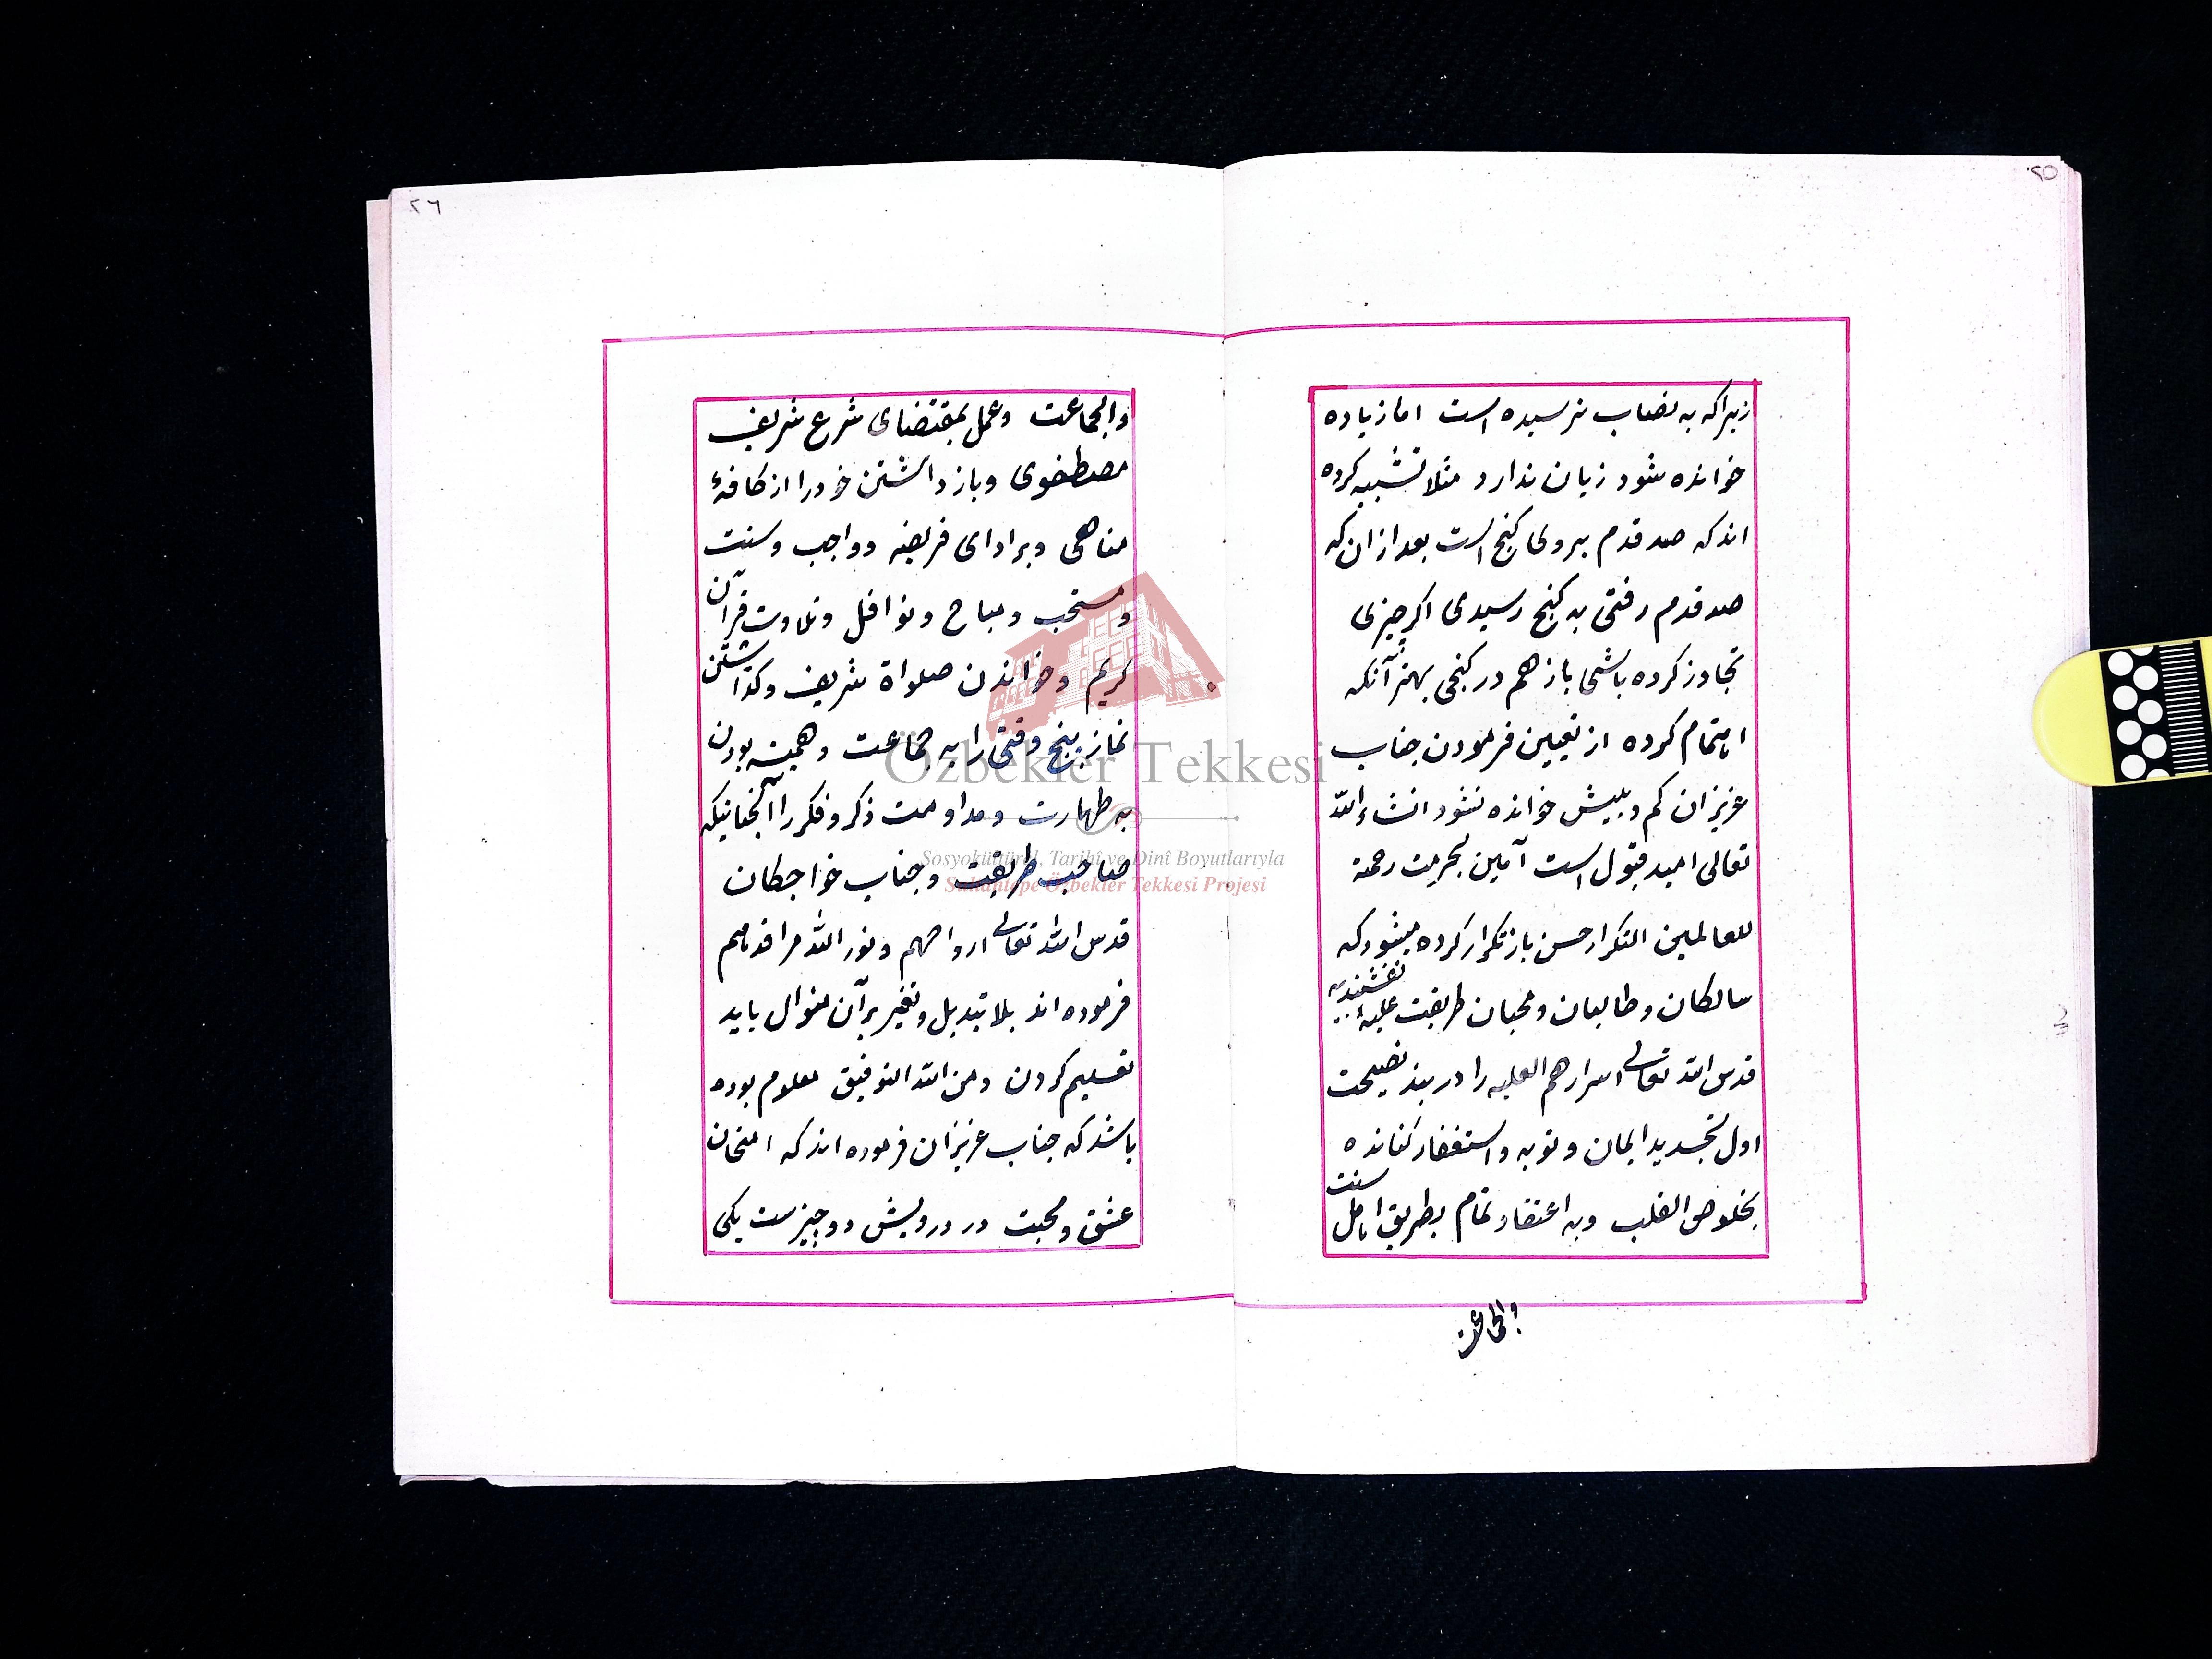 ٢٥
زیرا که به نصاب نرسیده است اما زیاده
خوانده شود زیان ندارد مثلا تشبیه کرده
اند که صد قدم بروی کنج است بعد ازان که
صد قدم رفتی به کنج رسیدی اگر چیزی
تجاوز کرده باشی باز هم در کنجی بهتر آنکه
اهتمام کرده از تعیین فرمودن جناب
عزیزان کم و بیش خوانده نشود انشاءالله
تعالی امید قبول است آمین بحرمت رحمة
للعالمین التکرار حسن باز تکرار کرده میشود که
سالکان و طالبان و محبان طریقت علیهٔ نقشبندیه
قدس الله تعالی اسرارهم العلیه را در بند نصیحت
اول تجدید ایمان و توبه و استغفار کنانده
بخلوص القلب و به اعتقاد تمام بطریق اهل سنت
والجماعت
٢٦
والجماعت وعمل بمقتضای شرع شریف
مصطفوی و باز داشتن خود را از کافهٔ
مناهی و بر ادای فریضه و واجب و سنت
و مستحب و مباح و نوافل و تلاوت قرآن
کریم و خواندن صلواة شریف و کذاشتن
نماز پنج وقتی را به جماعت و همیشه بودن
به طهارت و مداومت ذکر و فکر را آنچنانیکه
صاحب طریقت و جناب خواجکان
قدس الله تعالی ارواحهم و نور الله مراقدهم
فرموده اند بلا تبدیل و تغیر بر آن منوال باید
تعلیم کردن و من الله التوفیق معلوم بوده
باشد که جناب عزیزان فرموده اند که امتحان
عشق و محبت در درویش دو چیزست یکی
Özbekler Tekkesi
Sosyokültürel, Tarihî ve Dinî Boyutlarıyla
Sultantepe Özbekler Tekkesi Projesi